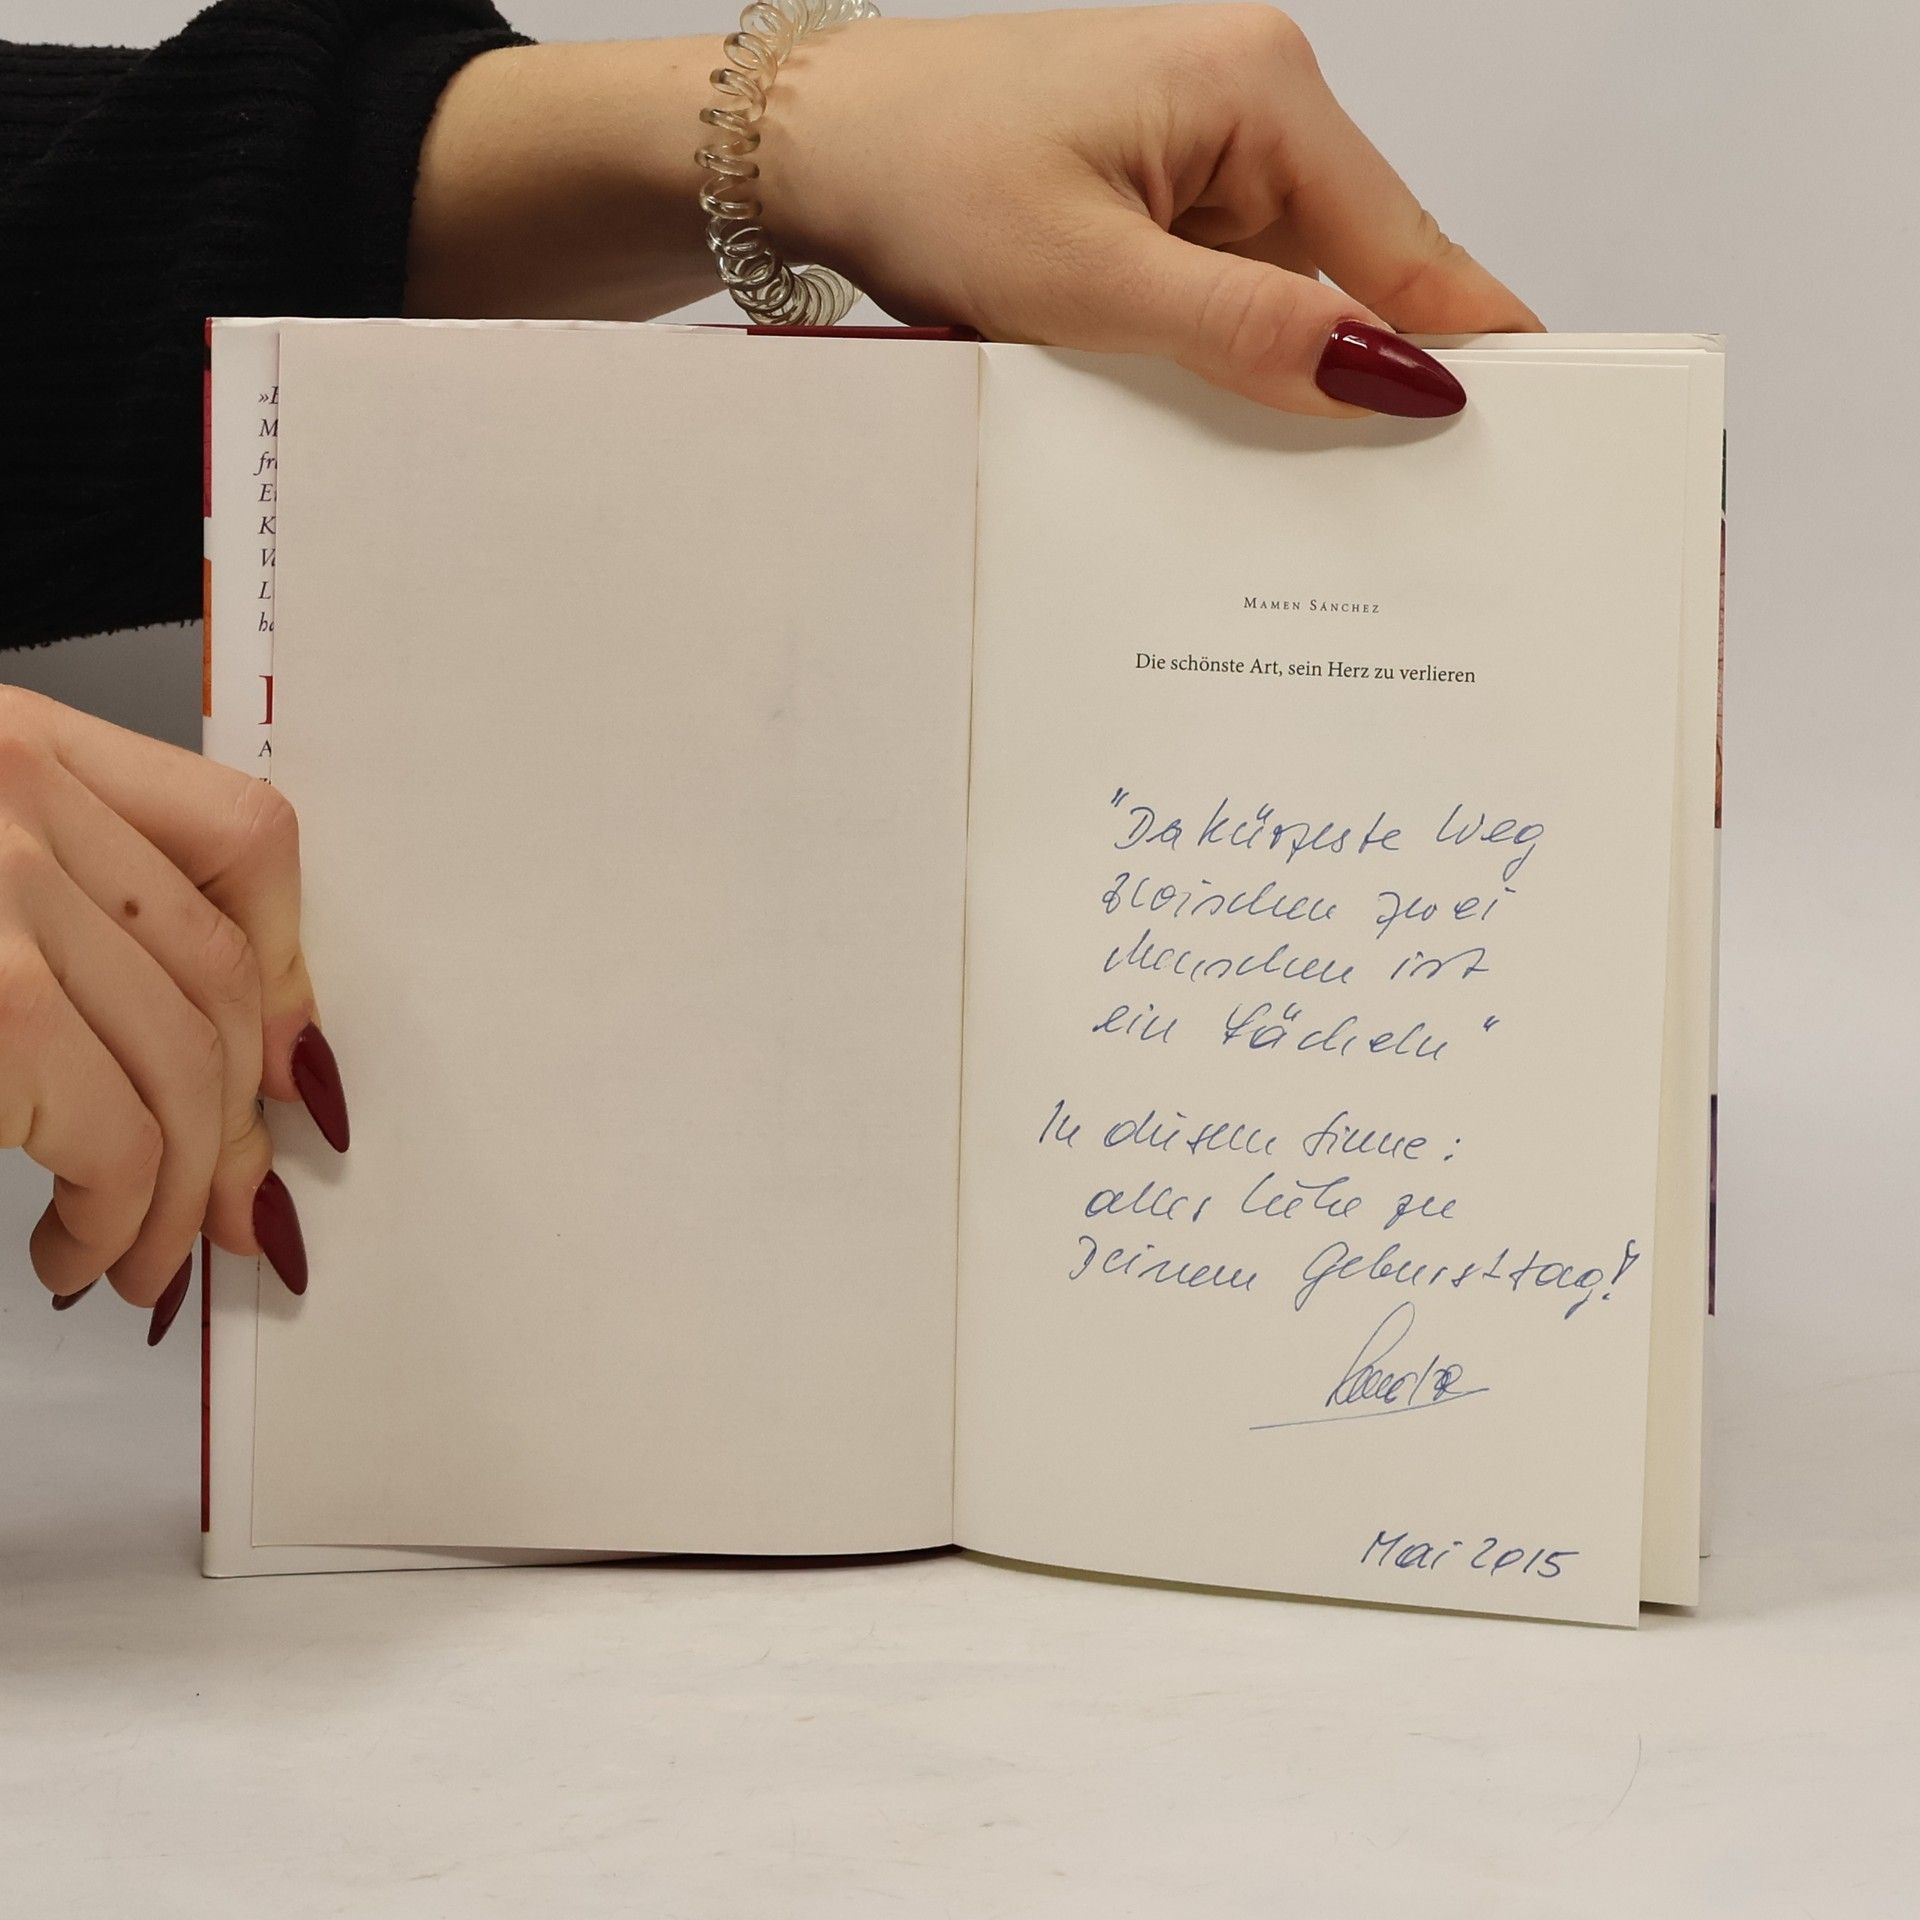 »E
M
fr
E
K
V
L
ha
A
MAMEN SÁNCHEZ
Die schönste Art, sein Herz zu verlieren
"Der kürzeste Weg
zwischen zwei
Menschen ist
ein Lächeln"
In diesem Sinne:
alles Liebe zu
Deinem Geburtstag!
Mai 2015